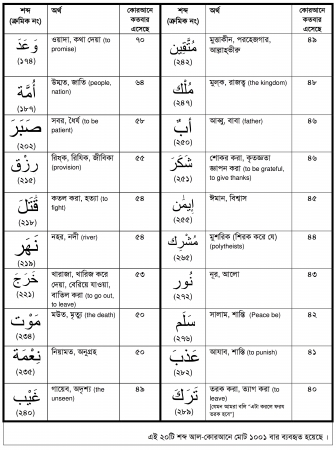 শব্দ (ক্রমিক নং) অর্থ কোরআনে কতবার এসেছে শব্দ (ক্রমিক নং) অর্থ কোরআনে কতবার এসেছে
وَعَدَ (১৭৪) ওয়াদা, কথা দেয়া (to promise) ৭০ مُتَّقِين (২৪২) মুত্তাকীন, পরহেজগার, আল্লাহভীরু ৪৯
أُمَّة (১৮৭) উম্মত, জাতি (people, nation) ৬৪ مُلْك (২৪৭) মুলক, রাজত্ব (the kingdom) ৪৮
صَبَرَ (২০২) সবর, ধৈর্য (to be patient) ৫৮ أَبٌ (২৫০) আব্বু, বাবা (father) ৪৬
رِزْق (২১৫) রিযক, রিযিক, জীবিকা (provision) ৫৫ شَكَرَ (২৫১) শোকর করা, কৃতজ্ঞতা জ্ঞাপন করা (to be grateful, to give thanks) ৪৬
قَتَلَ (২১৮) কতল করা, হত্যা (to fight) ৫৪ إِيمَٰن (২৫৫) ঈমান, বিশ্বাস ৪৫
نَهَر (২১৯) নহর, নদী (river) ৫৪ مُشْرِك (২৬৫) মুশরিক (শিরক করে যে) (polytheists) ৪৪
خَرَجَ (২২১) খারাজা, খারিজ করে দেয়া, বেরিয়ে যাওয়া, বাতিল করা (to go out, to leave) ৫৩ نُور (২৭২) নূর, আলো ৪৩
مَوْت (২৩৪) মউত, মৃত্যু (the death) ৫০ سَلَٰم (২৭৬) সালাম, শান্তি (Peace be) ৪২
نِعْمَة (২৩৫) নিয়ামত, অনুগ্রহ ৫০ عَذَّبَ (২৮২) আযাব, শাস্তি (to punish) ৪১
غَيْب (২৪০) গায়েব, অদৃশ্য (the unseen) ৪৯ تَرَكَ (২৮৯) তরক করা, ত্যাগ করা (to leave) [যেমন আমরা বলি "এটা করলে ফরয তরক হবে"] ৪০
এই ২০টি শব্দ আল-কোরআনে মোট ১০০১ বার ব্যবহৃত হয়েছে ।